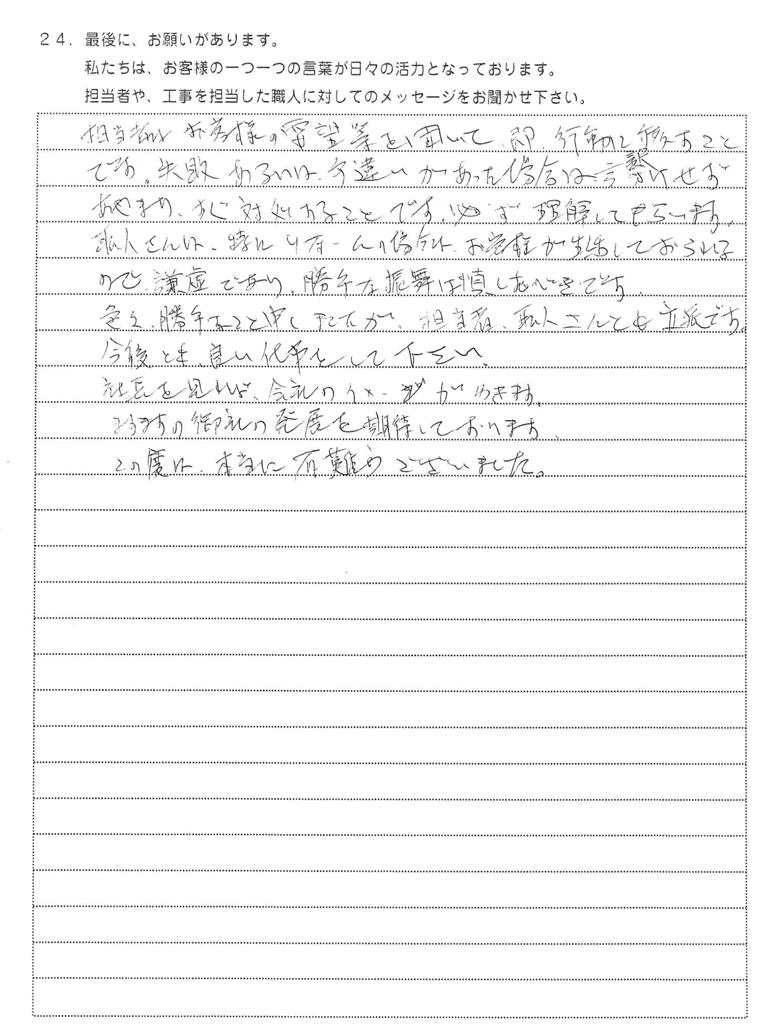 24. 最後に、お願いがあります。
私たちは、お客様の一つ一つの言葉が日々の活力となっております。
担当者や、工事を担当した職人に対してのメッセージをお聞かせ下さい。
担当者は お客様の要望等を聞いて、即、行動に移すこと
です。失敗あるいは、手違いがあった場合は、言訳せず
あやまり、すぐ対処することです。必ず理解してもらいます。
職人さんは、特にリフォームの場合は、お客様が生活しておられる
ので、謙虚であり、勝手な振舞は慎しむべきです。
色々、勝手なこと申しましたが、担当者、職人さんとも立派です。
今後とも、良い仕事をして下さい。
社長を見れば、会社のイメージがわきます。
ますますの御社の発展を期待しております。
この度は、本当に有難うございました。